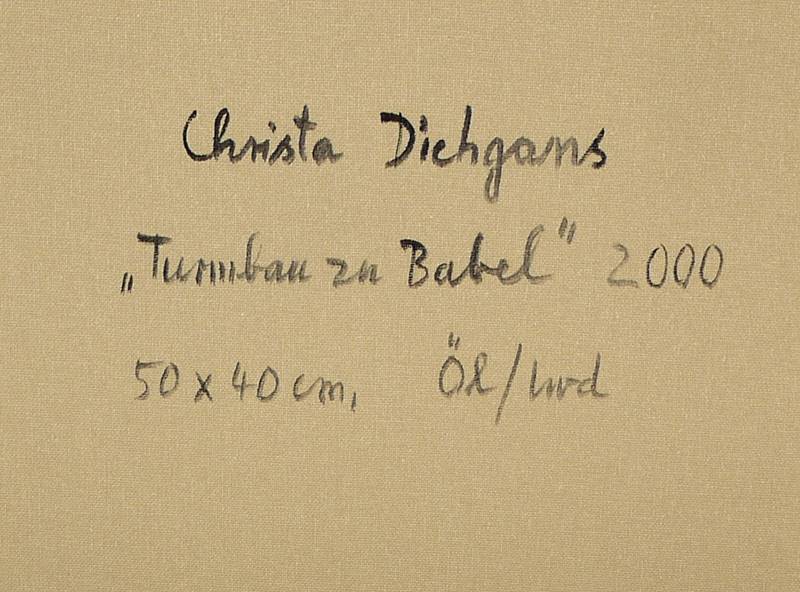 Christa Dichgans
„Turmbau zu Babel" 2000
50 x 40 cm, Öl/Lwd